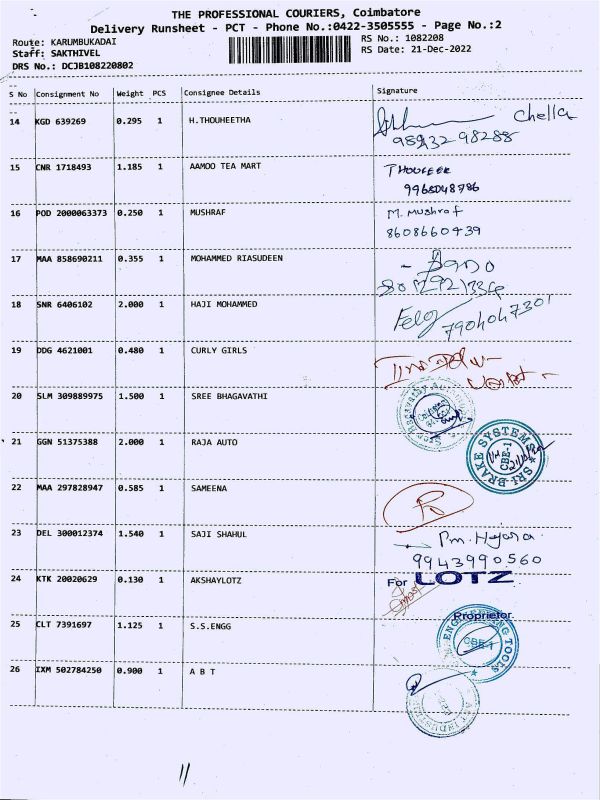 THE PROFESSIONAL COURIERS, Coimbatore
Delivery Runsheet - PCT - Phone No.:0422-3505555 - Page No.:2
Route: KARUMBUKADAI
RS No.: 1082208
Staff: SAKTHIVEL
RS Date: 21-Dec-2022
DRS No.: DCJB108220802
S No Consignment No Weight PCS Consignee Details Signature
14 KGD 639269 0.295 1 H.THOUHEETHA Chella
98432 98288
15 CNR 1718493 1.185 1 AAMOO TEA MART THOUFEEK
9965048786
16 POD 2000063373 0.250 1 MUSHRAF M. Mushraf
8608660439
17 MAA 858690211 0.355 1 MOHAMMED RIASUDEEN
18 SNR 6406102 2.000 1 HAJI MOHAMMED
7904047301
19 DDG 4621001 0.480 1 CURLY GIRLS
20 SLM 309889975 1.500 1 SREE BHAGAVATHI
21 GGN 51375388 2.000 1 RAJA AUTO SRI BRAKE SYSTEMS
CBE-1
22 MAA 297828947 0.585 1 SAMEENA
23 DEL 300012374 1.540 1 SAJI SHAHUL
9943990560
24 KTK 20020629 0.130 1 AKSHAYLOTZ For LOTZ
Proprietor
25 CLT 7391697 1.125 1 S.S.ENGG ENGINEERING TOOLS
CBE-1
26 IXM 502784250 0.900 1 A B T